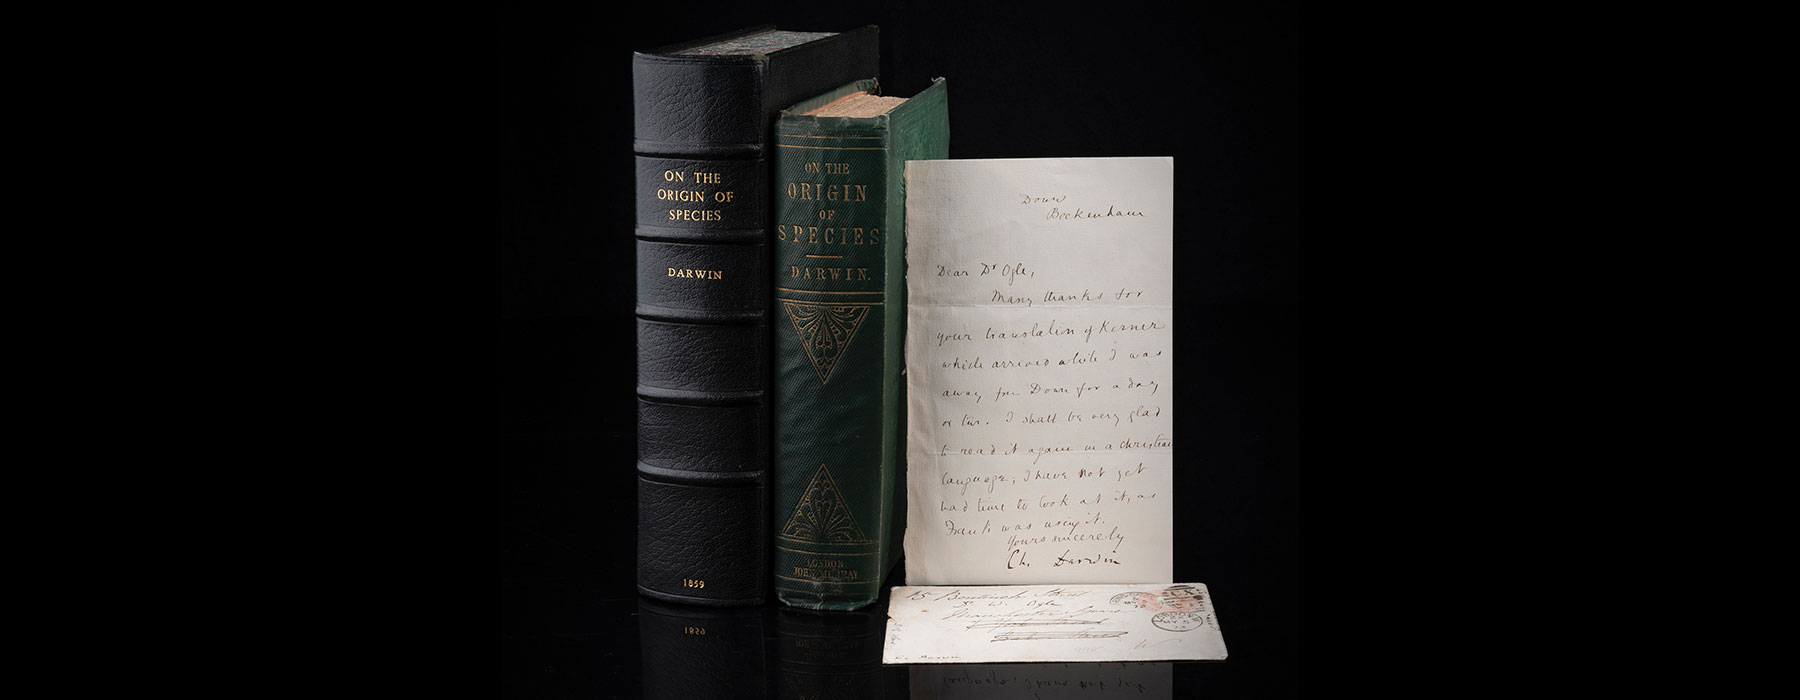 ON THE
ORIGIN OF
SPECIES
DARWIN
1859
ON THE
ORIGIN
OF
SPECIES
DARWIN.
LONDON
JOHN MURRAY
Down
Beckenham
Dear Dr Ogle,
Many thanks for
your translation of Kerner
which arrived while I was
away from Down for a day
or two. I shall be very glad
to read it again in a christian
language; I have not yet
had time to look at it, as
Frank was using it.
Yours sincerely
Ch. Darwin
15 Bentinck Street
Dr W. Ogle
Manchester Square